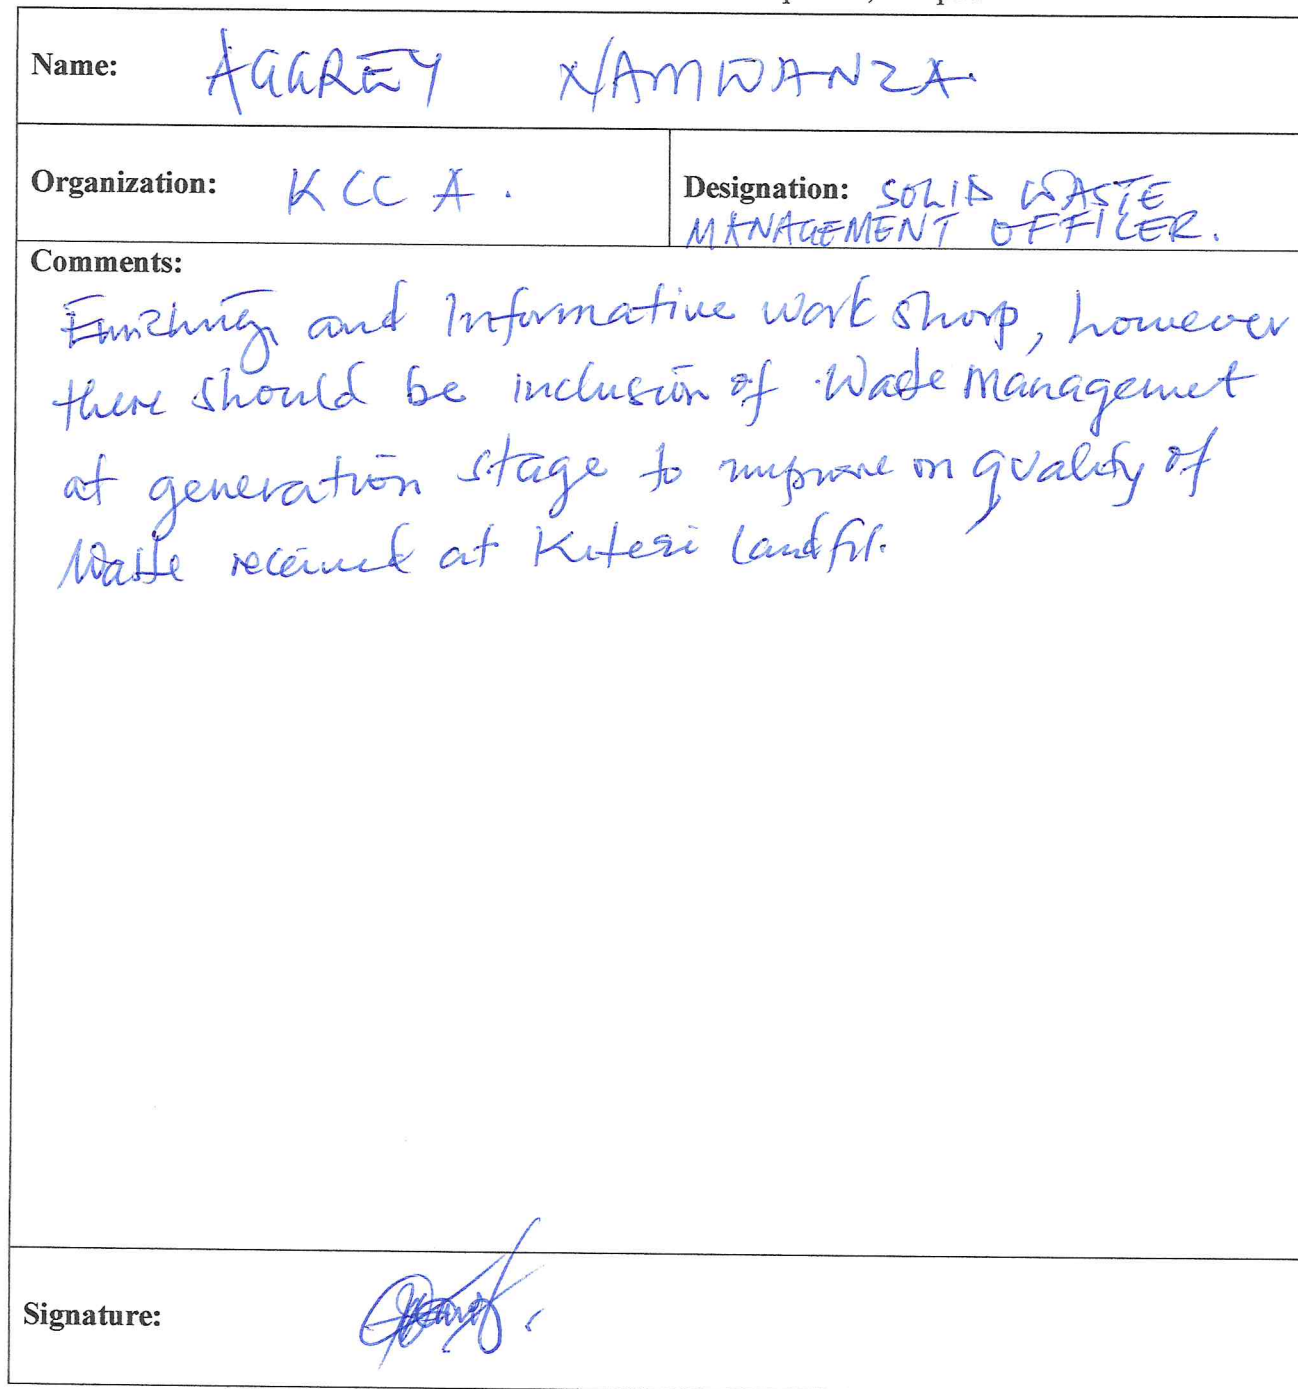 Name: AGGREY NAMWANZA.
Organization: KCCA.
Designation: SOLID WASTE
MANAGEMENT OFFICER.
Comments:
and Informative work shop, however
there should be inclusion of Waste Managemet
at generation stage to improve on quality of
Waste received at Kiteezi landfil.
Signature: